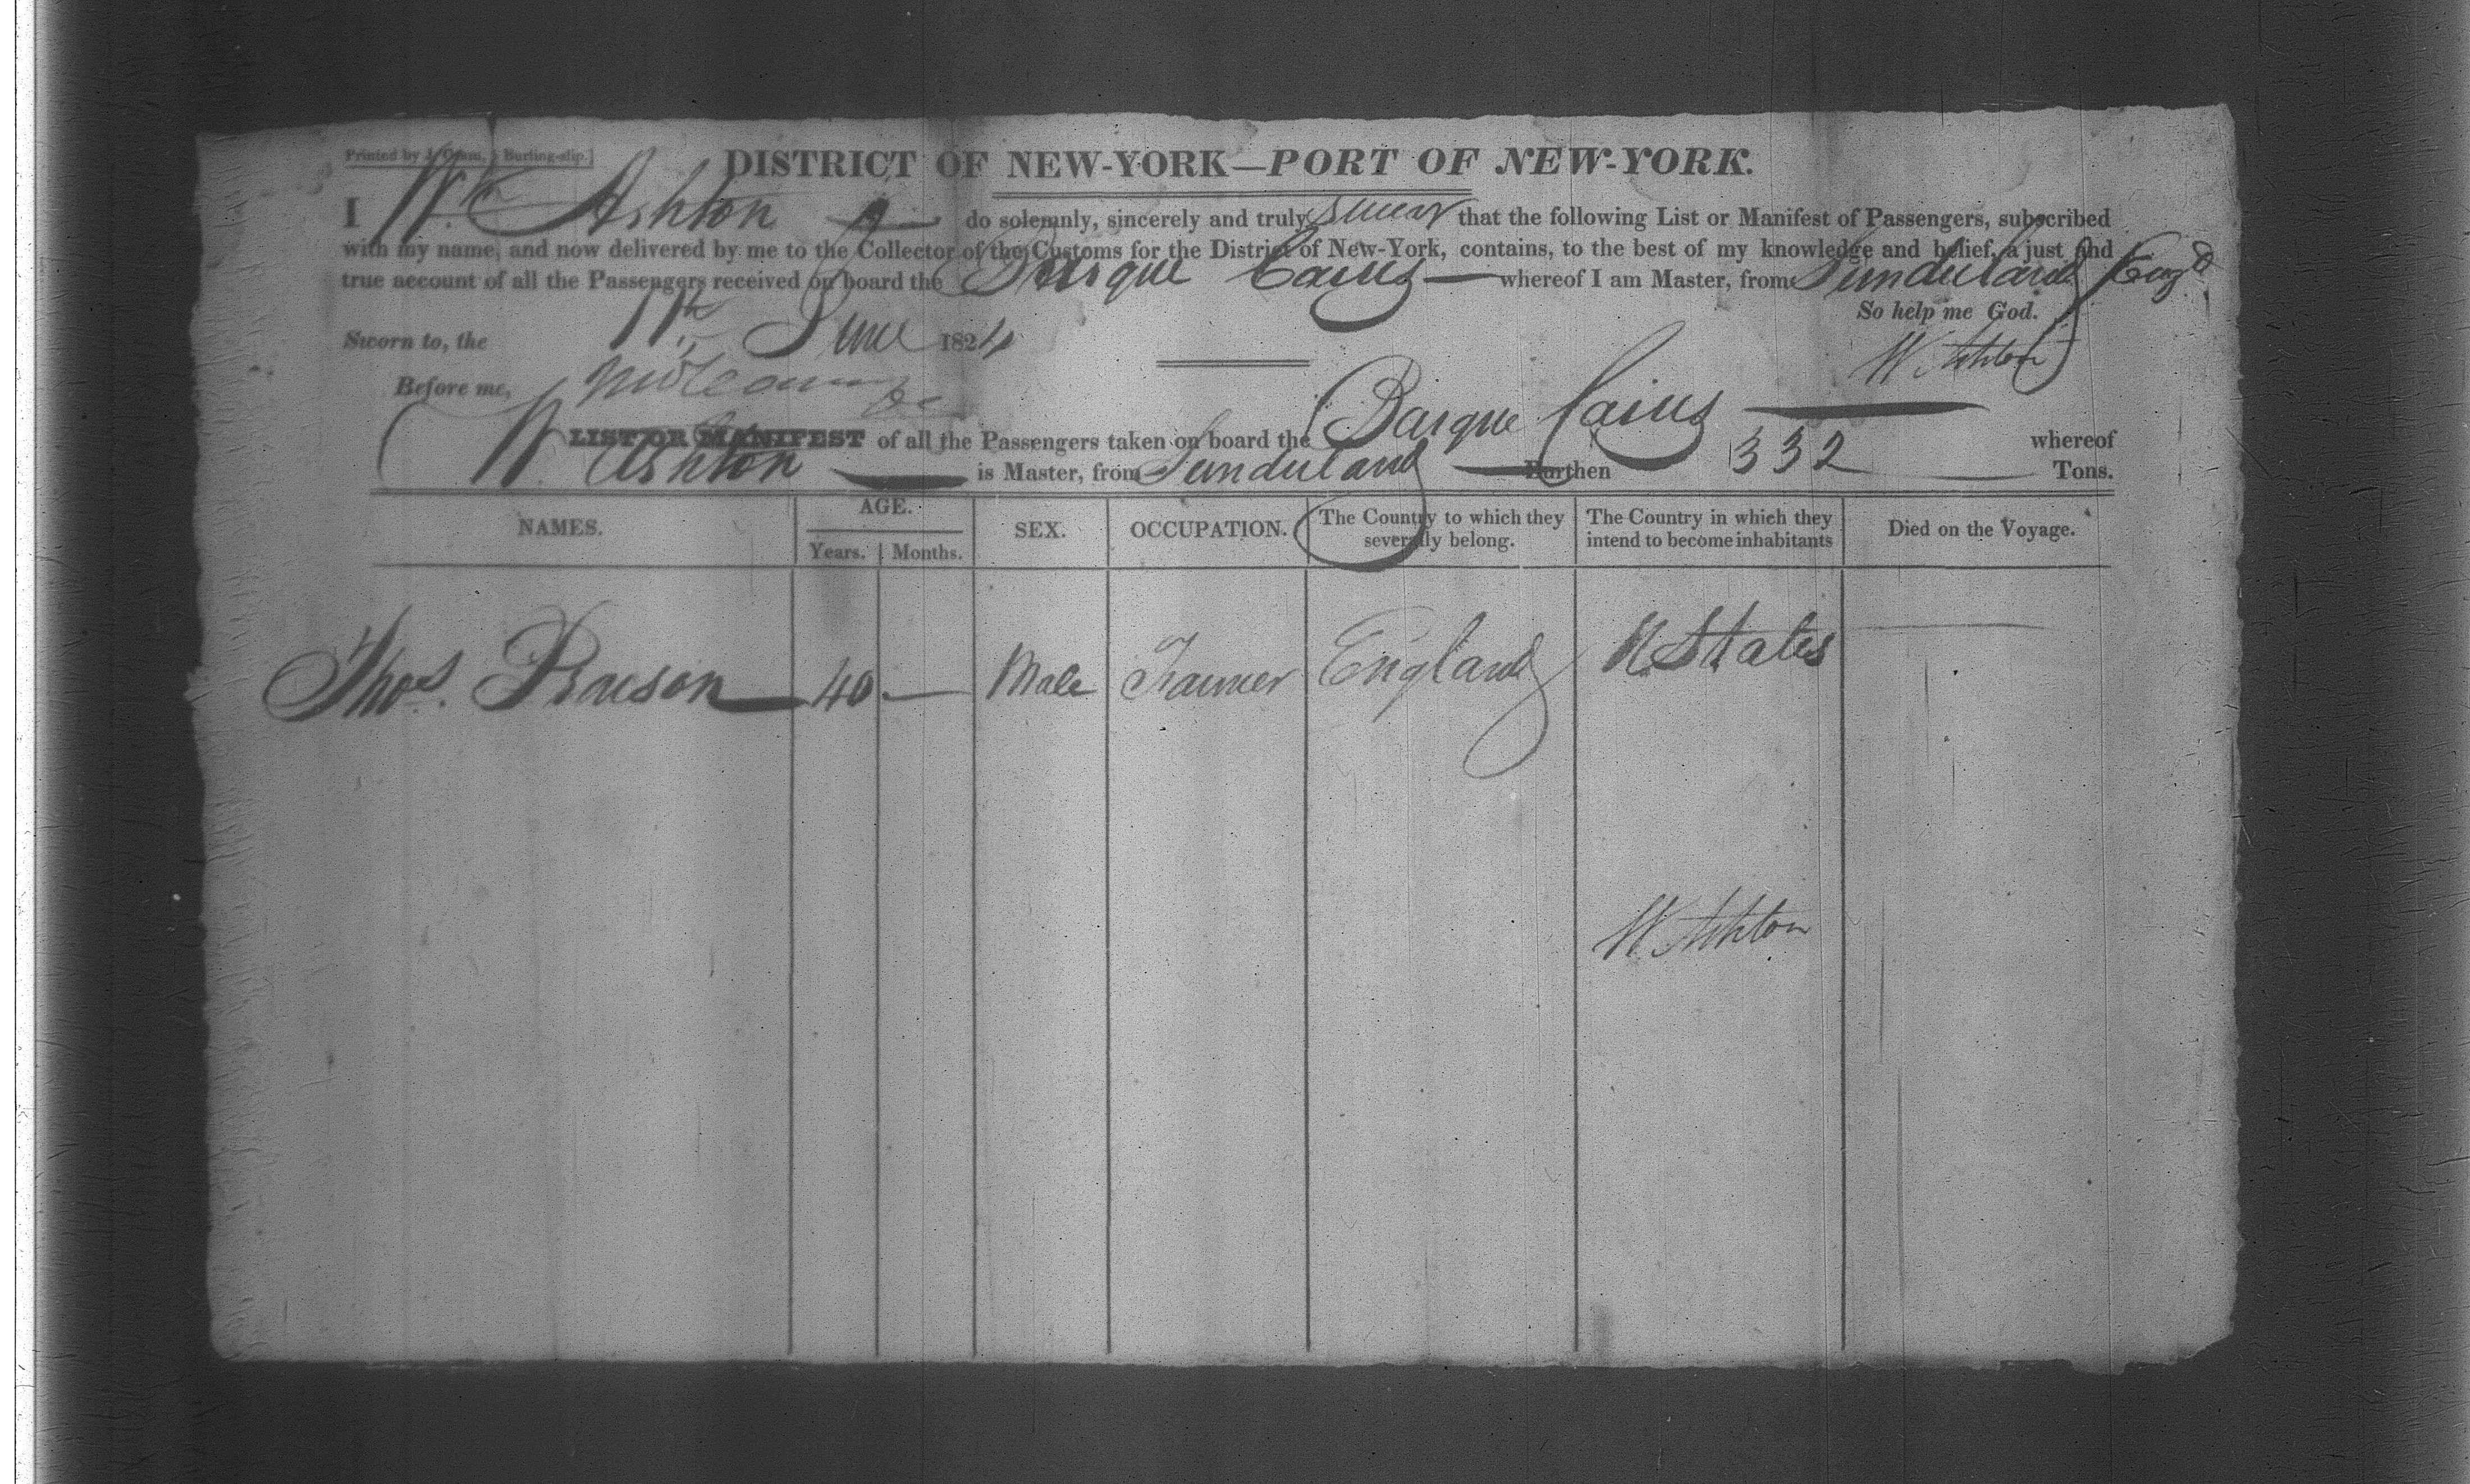 Printed by J. Oram, Burling-slip.]
DISTRICT OF NEW-YORK—PORT OF NEW-YORK.
I Wm Ashton do solemnly, sincerely and truly swear that the following List or Manifest of Passengers, subscribed
with my name, and now delivered by me to the Collector of the Customs for the District of New-York, contains, to the best of my knowledge and belief, a just and
true account of all the Passengers received on board the Barque Caius whereof I am Master, from Sunderland Engd
So help me God.
Sworn to, the 11th June 1824
W Ashton
Before me,
LIST OR MANIFEST of all the Passengers taken on board the Barque Caius whereof
W Ashton is Master, from Sunderland Burthen 332 Tons.
NAMES. AGE. Years. Months. SEX. OCCUPATION. The Country to which they severally belong. The Country in which they intend to become inhabitants Died on the Voyage.
Thos. 40 — Male Farmer England U States
W Ashton